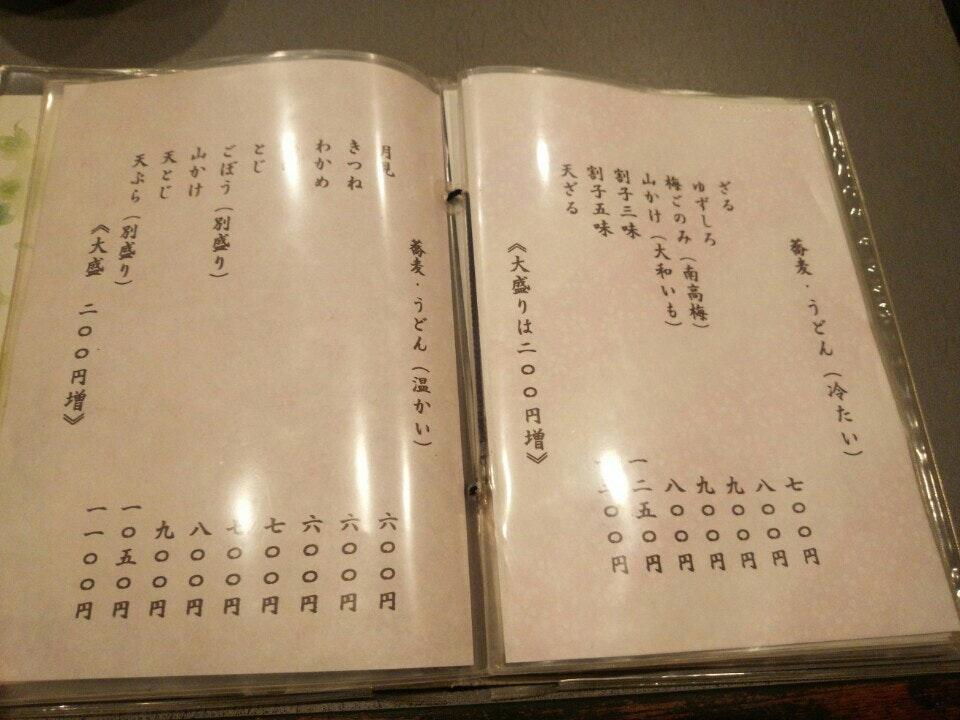 蕎麦・うどん(冷たい)
ざる 七〇〇円
ゆずしろ 八〇〇円
梅ごのみ(南高梅) 九〇〇円
山かけ(大和いも) 九〇〇円
割子三味 八〇〇円
割子五味 一二五〇円
天ざる 一二〇〇円
《大盛りは二〇〇円増》
蕎麦・うどん(温かい)
月見 六〇〇円
きつね 六〇〇円
わかめ 六〇〇円
七〇〇円
とじ 七〇〇円
ごぼう(別盛り) 八〇〇円
山かけ 九〇〇円
天とじ 一〇五〇円
天ぷら(別盛り) 一一〇〇円
《大盛 二〇〇円増》